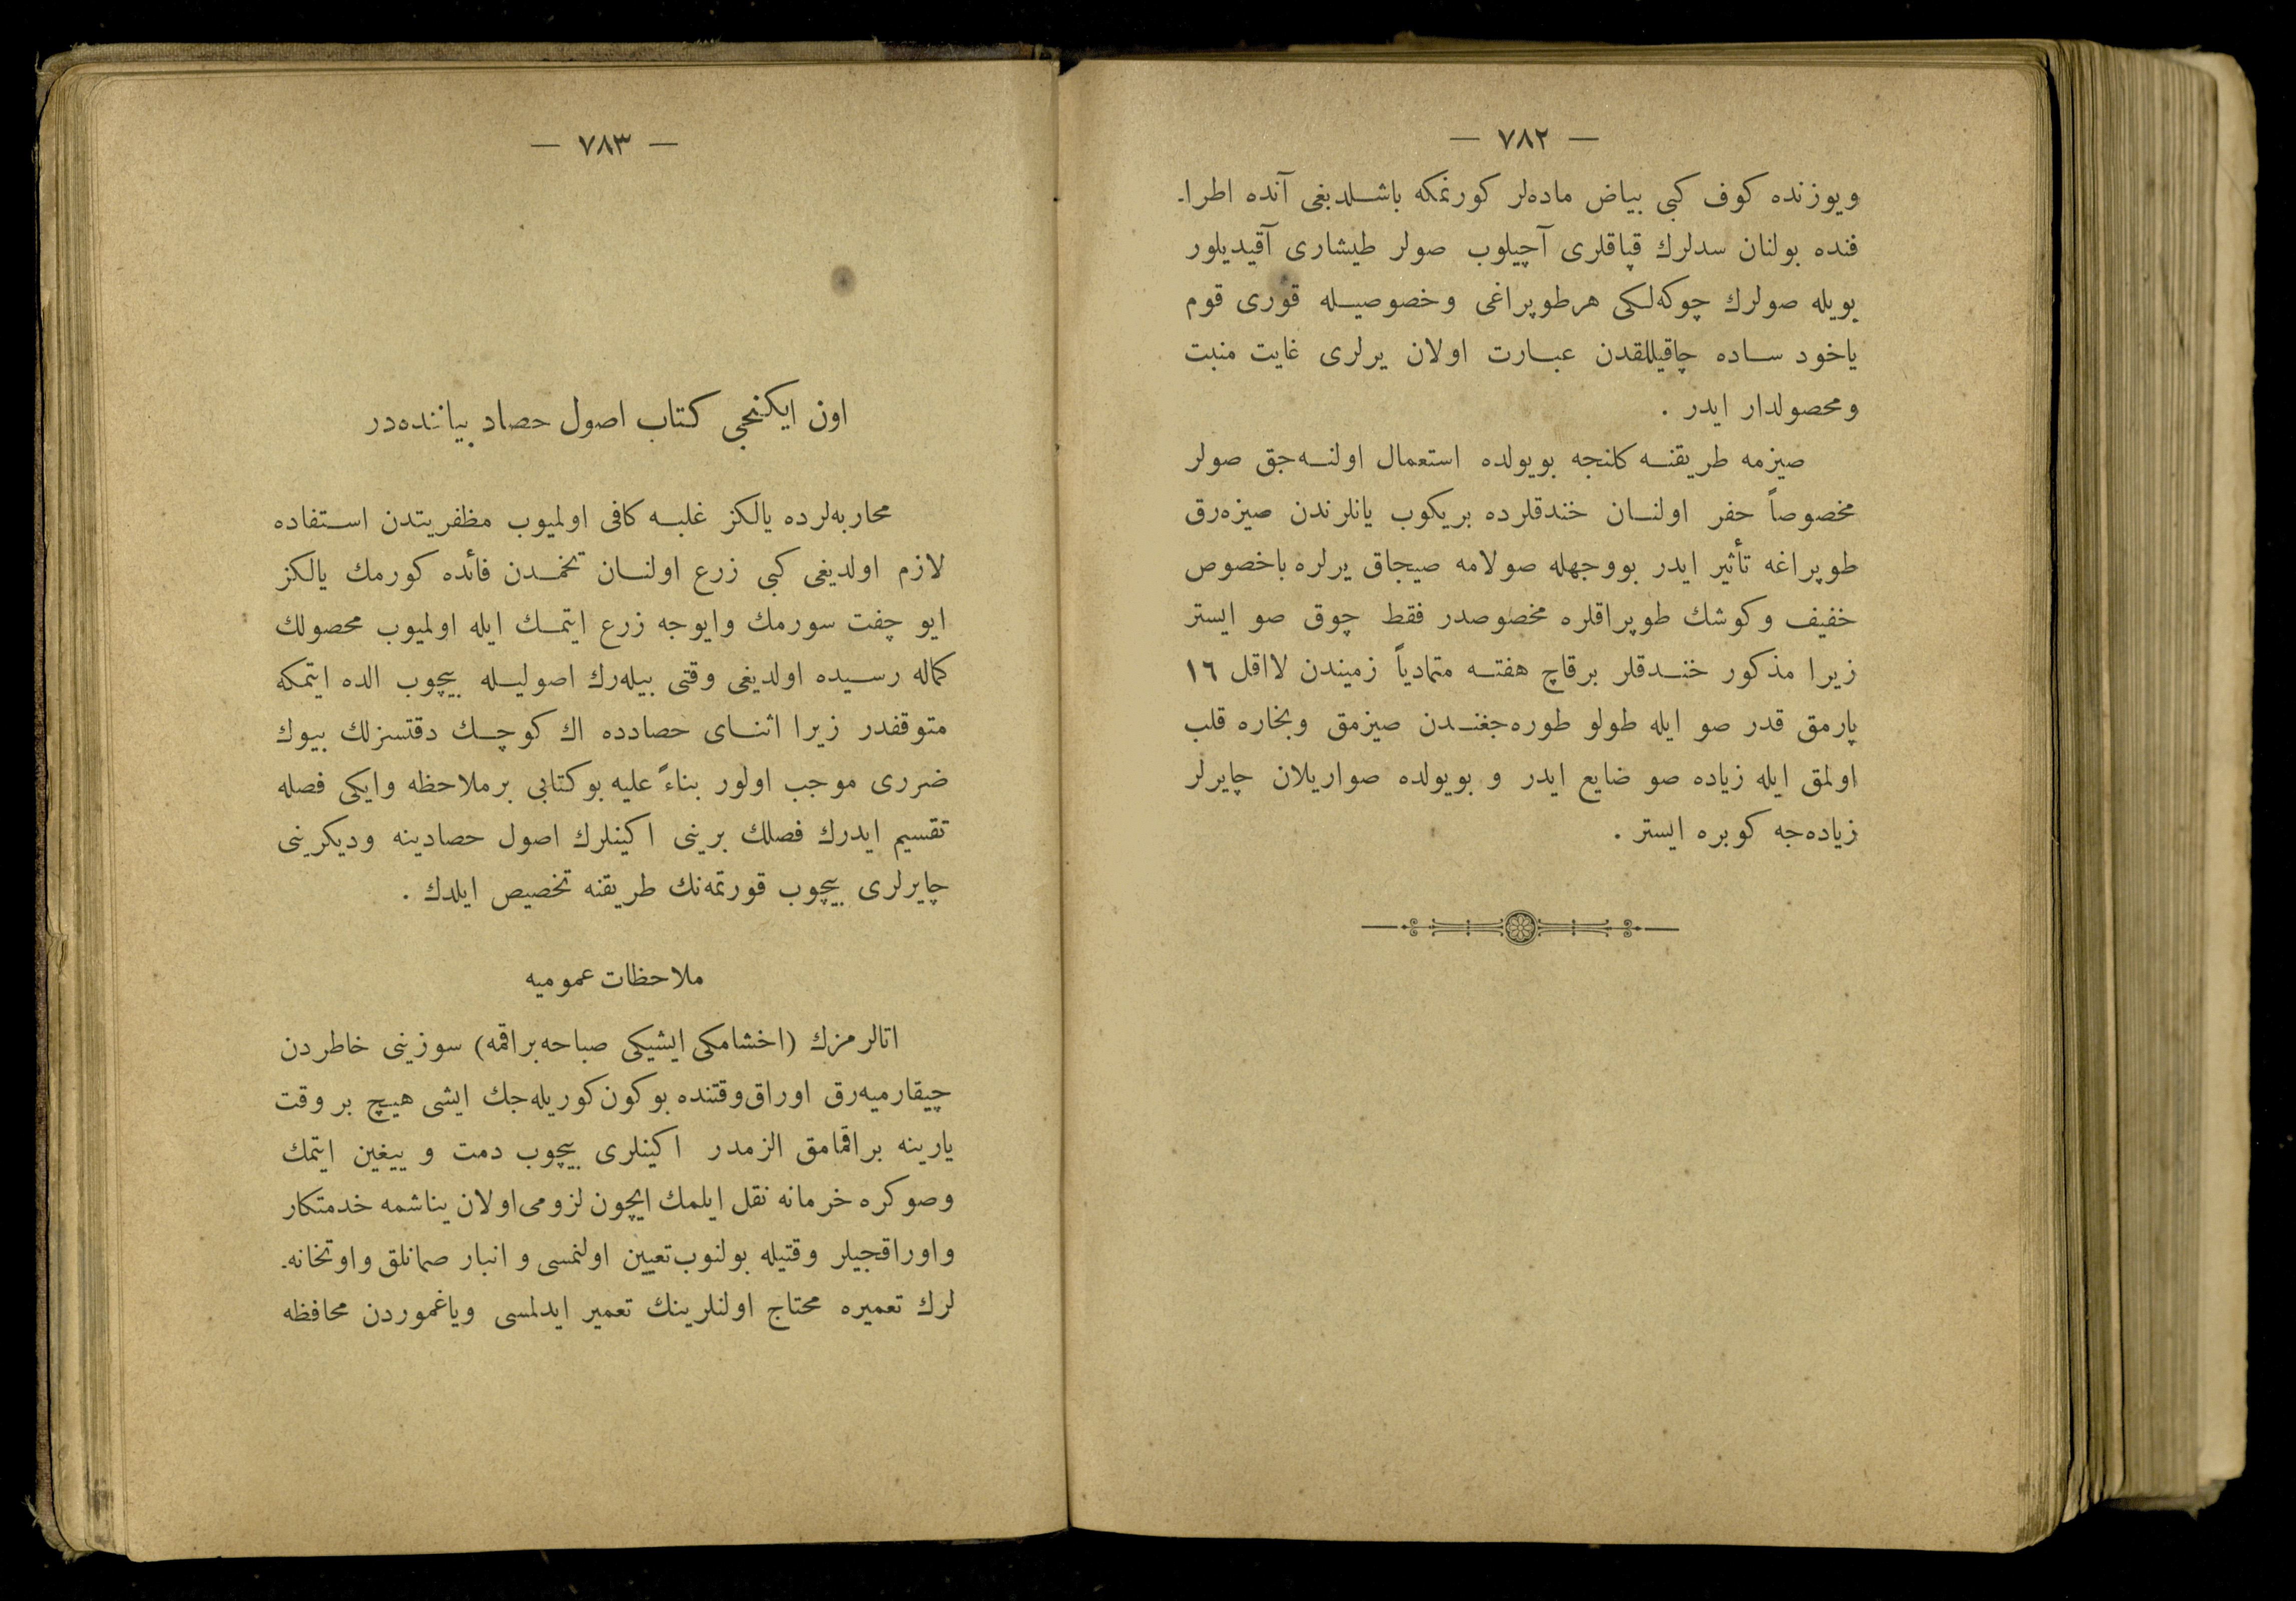 — ٧٨٢ —
ويوزنده كوف كبى بياض ماده‌لر كورنمكه باشلديغى آنده اطرا-
فنده بولنان سدلرك قپاقلرى آچيلوب صولر طيشارى آقيديلور
بويله صولرك چوكه‌لكى هرطوپراغى وخصوصيله قورى قوم
ياخود ساده چاقيللقدن عبارت اولان يرلرى غايت منبت
ومحصولدار ايدر .
صيزمه طريقنه كلنجه بويولده استعمال اولنه‌جق صولر
مخصوصاً حفر اولنان خندقلرده بريكوب يانلرندن صيزه‌رق
طوپراغه تأثير ايدر بووجهله صولامه صيجاق يرلره باخصوص
خفيف وكوشك طوپراقلره مخصوصدر فقط چوق صو ايستر
زيرا مذكور خندقلر برقاچ هفته متمادياً زميندن لااقل ١٦
پارمق قدر صو ايله طولو طوره‌جغندن صيزمق وبخاره قلب
اولمق ايله زياده صو ضايع ايدر و بويولده صواريلان چايرلر
زياده‌جه كوبره ايستر .
— ٧٨٣ —
اون ايكنجى كتاب اصول حصاد بياننده‌در
محاربه‌لرده يالكز غلبه كافى اولميوب مظفريتدن استفاده
لازم اولديغى كبى زرع اولنان تخمدن فائده كورمك يالكز
ايو چفت سورمك وايوجه زرع ايتمك ايله اولميوب محصولك
كماله رسيده اولديغى وقتى بيله‌رك اصوليله بيچوب الده ايتمكه
متوقفدر زيرا اثناى حصادده اك كوچك دقتسزلك بيوك
ضررى موجب اولور بناءً عليه بوكتابى برملاحظه وايكى فصله
تقسيم ايدرك فصلك برينى اكينلرك اصول حصادينه وديكرينى
چايرلرى بيچوب قورتمه‌نك طريقنه تخصيص ايلدك .
ملاحظات عموميه
اتالرمزك (اخشامكى ايشيكى صباحه‌براقمه) سوزينى خاطردن
چيقارميه‌رق اوراق‌وقتنده بوكون‌كوريله‌جك ايشى هيچ بر وقت
يارينه براقمامق الزمدر اكينلرى بيچوب دمت و ييغين ايتمك
وصوكره خرمانه نقل ايلمك ايچون لزومى‌اولان يناشمه خدمتكار
واوراقجيلر وقتيله بولنوب‌تعيين اولنمسى و انبار صمانلق واوتخانه-
لرك تعميره محتاج اولنلرينك تعمير ايدلمسى وياغموردن محافظه